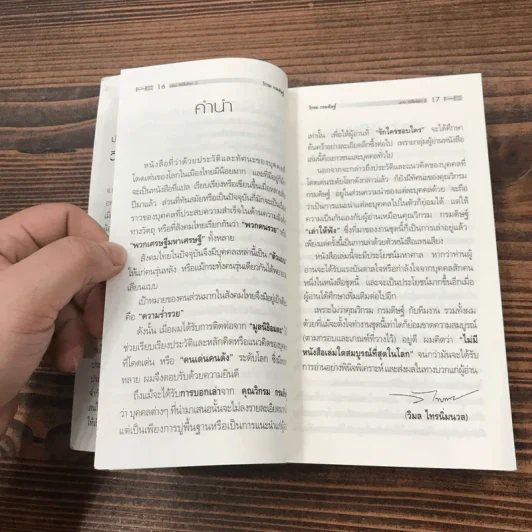 16
วิกรม กรมดิษฐ์
คำนำ
หนังสือที่ว่าด้วยประวัติและทัศนะของบุคคลที่
โดดเด่นของโลกในเมืองไทยมีน้อยมาก และที่มีอยู่ก็มัก
จะเป็นหนังสือที่แปล เรียบเรียงหรือเขียนขึ้นเมื่อหลาย
ปีมาแล้ว ส่วนที่ทันสมัยหรือเป็นปัจจุบันก็มักจะเป็นเรื่อง
ราวของบุคคลที่ประสบความสำเร็จในด้านความมั่งคั่ง
ทางวัตถุ หรือที่สังคมไทยเรียกกันว่า "พวกคนรวย" หรือ
"พวกเศรษฐีมหาเศรษฐี" ทั้งหลาย
สังคมไทยในปัจจุบันจึงมีบุคคลเหล่านี้เป็น "ตัวแบบ"
ให้แก่คนรุ่นหลัง หรือแม้กระทั่งคนรุ่นเดียวกันได้พยายาม
เลียนแบบ
เป้าหมายของคนส่วนมากในสังคมไทยจึงมีอยู่อย่างเดียว
คือ "ความร่ำรวย"
ดังนั้น เมื่อผมได้รับการติดต่อจาก "มูลนิธิอมตะ"
ช่วยเรียบเรียงประวัติและหลักคิดหรือแนวคิดของบุคคล
ที่โดดเด่น หรือ "คนเด่นคนดัง" ระดับโลก ซึ่งมี
หลาย ผมจึงตอบรับด้วยความยินดี
ถึงแม้จะได้รับการบอกเล่าจาก คุณวิกรม กรมดิษฐ์
ว่า บุคคลต่างๆ ที่นำมาเสนอนั้นจะไม่ลงรายละเอียดมาก
แต่เป็นเพียงการปูพื้นฐานหรือเป็นการแนะนำแก่ผู้อ่าน
วิกรม กรมดิษฐ์
17
เท่านั้น เพื่อให้ผู้อ่านที่ "รักใคร่ชอบใคร" จะได้ศึกษา
ค้นคว้าอย่างละเอียดลึกซึ้งต่อไป เพราะกลุ่มผู้อ่านหนังสือ
เล่มนี้คือเยาวชนและบุคคลทั่วไป
นอกจากจะกล่าวถึงประวัติและแนวคิดของบุคคลที่
โดดเด่นระดับโลกดังกล่าวแล้ว ก็ยังมีทัศนะของคุณวิกรม
กรมดิษฐ์ อยู่ในส่วนความนำของแต่ละบุคคลด้วย
ว่าเป็นการแนะนำแต่ละบุคคลไปในตัวก็ย่อมได้ แต่ให้
ความเป็นกันเองกับผู้อ่านเหมือนคุณวิกรม กรมดิษฐ์
"เล่าให้ฟัง" ซึ่งที่มาของงานชุดนี้ก็เป็นการเล่าอยู่แล้ว
เพียงแต่ครั้งนี้เป็นการเล่าด้วยตัวหนังสือแทนเสียง
หนังสือเล่มนี้จะมีประโยชน์มหาศาล หากว่าท่านผู้
อ่านจะได้รับแรงบันดาลใจหรือกำลังใจจากบุคคลสักคน
หนึ่งในหนังสือชุดนี้ และจะเป็นประโยชน์มากขึ้นอีกเมื่อ
ผู้อ่านได้ศึกษาเพิ่มเติมต่อไปอีก
เพราะไม่ว่าคุณวิกรม กรมดิษฐ์ กับทีมงาน รวมทั้งผม
ด้วยที่แม้จะตั้งใจทำงานชุดนี้เท่าใดก็ย่อมขาดความสมบูรณ์
(ตามกรอบและเกณฑ์ที่วางไว้) อยู่ดี ผมคิดว่า "ไม่มี
หนังสือเล่มใดสมบูรณ์ที่สุดในโลก" จนกว่ามันจะได้รับ
การอ่านอย่างพินิจพิเคราะห์ และส่งผลในทางบวกแก่ผู้อ่าน
(วิมล ไทรนิ่มนวล)